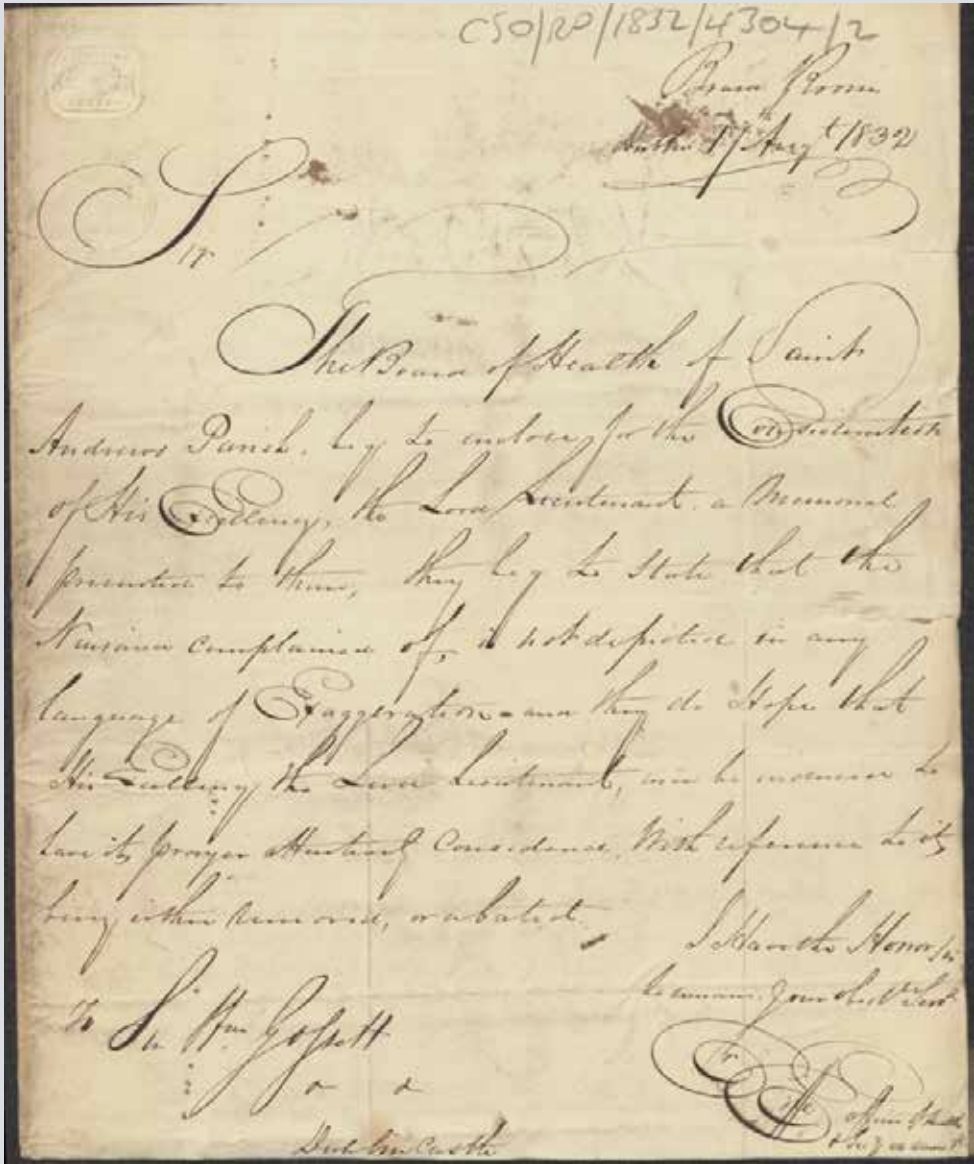 CSO/RP/1832/4304/2
Board Room
17th Augt 1832
Sir
The Board of Health of Saint
Andrews Parish, beg to enclose, for the Consideration
of His Excellency, the Lord Lieutenant, a Memorial
presented to them, they beg to state that the
Nuisance complained of, is not depicted in any
language of Exaggeration - and they do Hope that
His Excellency the Lord Lieutenant, will be induced to
have its prayer Considered, With reference to its
being either removed, or abated.
I Have the Honor to
be Your Obedt Servt
To Sir Wm Gossett
Dublin Castle
Officer of Health